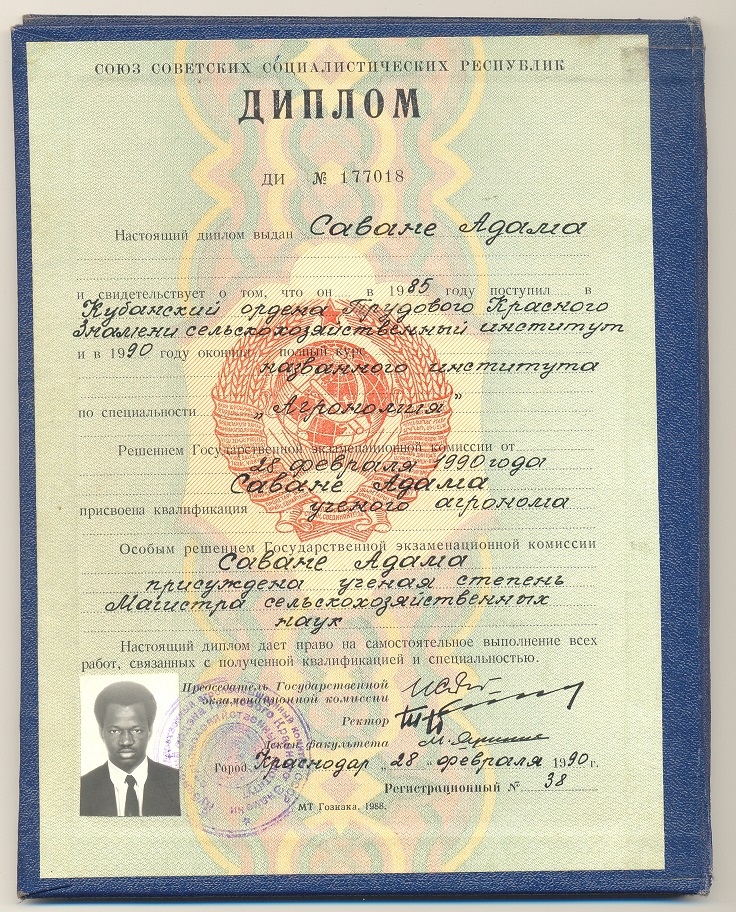 СОЮЗ СОВЕТСКИХ СОЦИАЛИСТИЧЕСКИХ РЕСПУБЛИК
ДИПЛОМ
ДИ № 177018
Настоящий диплом выдан Саване Адама
и свидетельствует о том, что он в 1985 году поступил в
Кубанский ордена Трудового Красного
Знамени сельскохозяйственный институт
и в 1990 году окончил полный курс
названного института
по специальности „Агрономия"
Решением Государственной экзаменационной комиссии от
28 февраля 1990 года
Саване Адама
присвоена квалификация ученого агронома
Особым решением Государственной экзаменационной комиссии
Саване Адама
присуждена ученая степень
Магистра сельскохозяйственных
наук
Настоящий диплом дает право на самостоятельное выполнение всех
работ, связанных с полученной квалификацией и специальностью.
Председатель Государственной
экзаменационной комиссии
Ректор
Декан факультета
Город Краснодар „28" февраля 1990 г.
Регистрационный № 38
МТ Гознака. 1988.